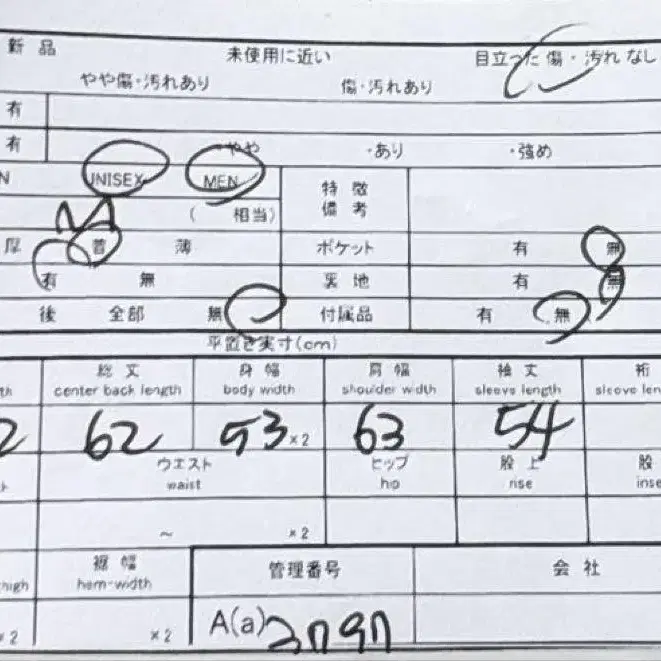 新品 未使用に近い 目立った傷・汚れなし
やや傷・汚れあり 傷・汚れあり
有
有 やや ・あり ・強め
N UNISEX MEN 特徴
備考
M ( 相当)
厚 普 薄 ポケット 有 無
有 無 裏地 有 無
後 全部 無 付属品 有 無
平置き実寸(cm)
総丈 身幅 肩幅 袖丈 裄
th center back length body width shoulder width sleeve length sleeve len
2 62 53 ×2 63 54
ウエスト ヒップ 股上 股
waist hip rise inse
~ ×2
裾幅 管理番号 会社
high hem-width
×2 ×2 A(a)